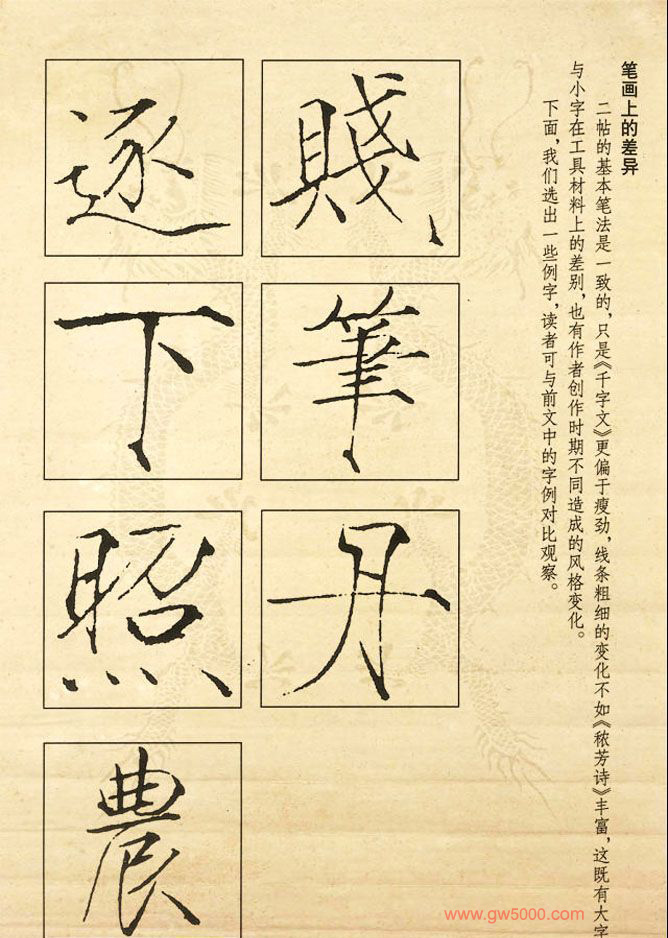 笔画上的差异
二帖的基本笔法是一致的，只是《千字文》更偏于瘦劲，线条粗细的变化不如《秾芳诗》丰富，这既有大字
与小字在工具材料上的差别，也有作者创作时期不同造成的风格变化。
下面，我们选出一些例字，读者可与前文中的字例对比观察。
賤
筆
丹
逐
下
照
農
www.gw5000.com